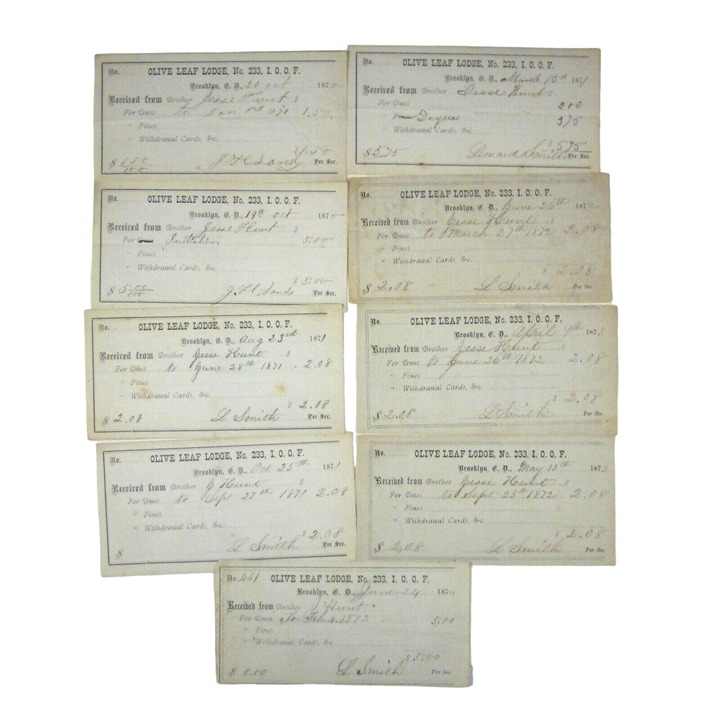 No. OLIVE LEAF LODGE, No. 233, I. O. O. F.
Brooklyn, E. D., 20 oct 187
Received from Brother Jesse Hunt
For Dues to Jan 1st 1871 1.50
" Fines
" Withdrawal Cards, &c.
$1.50
$1.50 J H C Sands Per Sec.
No. OLIVE LEAF LODGE, No. 233, I. O. O. F.
Brooklyn, E. D., March 15th 1871
Received from Brother Jesse Hunt
For Dues 200
Degree 375
" Fines
" Withdrawal Cards, &c.
$ 5.75
$5.75 Leonard Smith Per Sec.
No. OLIVE LEAF LODGE, No. 233, I. O. O. F.
Brooklyn, E. D., 19th oct 187
Received from Brother Jesse Hunt
For Initiation 5.00
" Fines
" Withdrawal Cards, &c.
$ 5.00
$5.00 J H C Sands Per Sec.
No. OLIVE LEAF LODGE, No. 233, I. O. O. F.
Brooklyn, E. D., June 26th 187
Received from Brother Jesse Hunt
For Dues to March 27th 1872 2.08
" Fines
" Withdrawal Cards, &c.
$ 2.08
$ 2.08 L Smith Per Sec.
No. OLIVE LEAF LODGE, No. 233, I. O. O. F.
Brooklyn, E. D., Aug 23rd 1871
Received from Brother Jesse Hunt
For Dues to June 28th 1871 2.08
" Fines
" Withdrawal Cards, &c.
$ 2.08
$2.08 L Smith Per Sec.
No. OLIVE LEAF LODGE, No. 233, I. O. O. F.
Brooklyn, E. D., April 9th 1873
Received from Brother Jesse Hunt
For Dues to June 26th 1872 2.08
" Fines
" Withdrawal Cards, &c.
$ 2.08
$ 2.08 L Smith Per Sec.
No. OLIVE LEAF LODGE, No. 233, I. O. O. F.
Brooklyn, E. D., Oct 25th 1871
Received from Brother J Hunt
For Dues to Sept 27th 1871 2.08
" Fines
" Withdrawal Cards, &c.
$ 2.08
$ L Smith Per Sec.
No. OLIVE LEAF LODGE, No. 233, I. O. O. F.
Brooklyn, E. D., May 13th 1873
Received from Brother Jesse Hunt
For Dues to Sept 25th 1872 2.08
" Fines
" Withdrawal Cards, &c.
$ 2.08
$ 2.08 L Smith Per Sec.
No. 461 OLIVE LEAF LODGE, No. 233, I. O. O. F.
Brooklyn, E. D., June 24 187
Received from Brother J Hunt
For Dues To 1873 5.00
" Fines
" Withdrawal Cards, &c.
$ 5.00
$ 5.00 L Smith Per Sec.